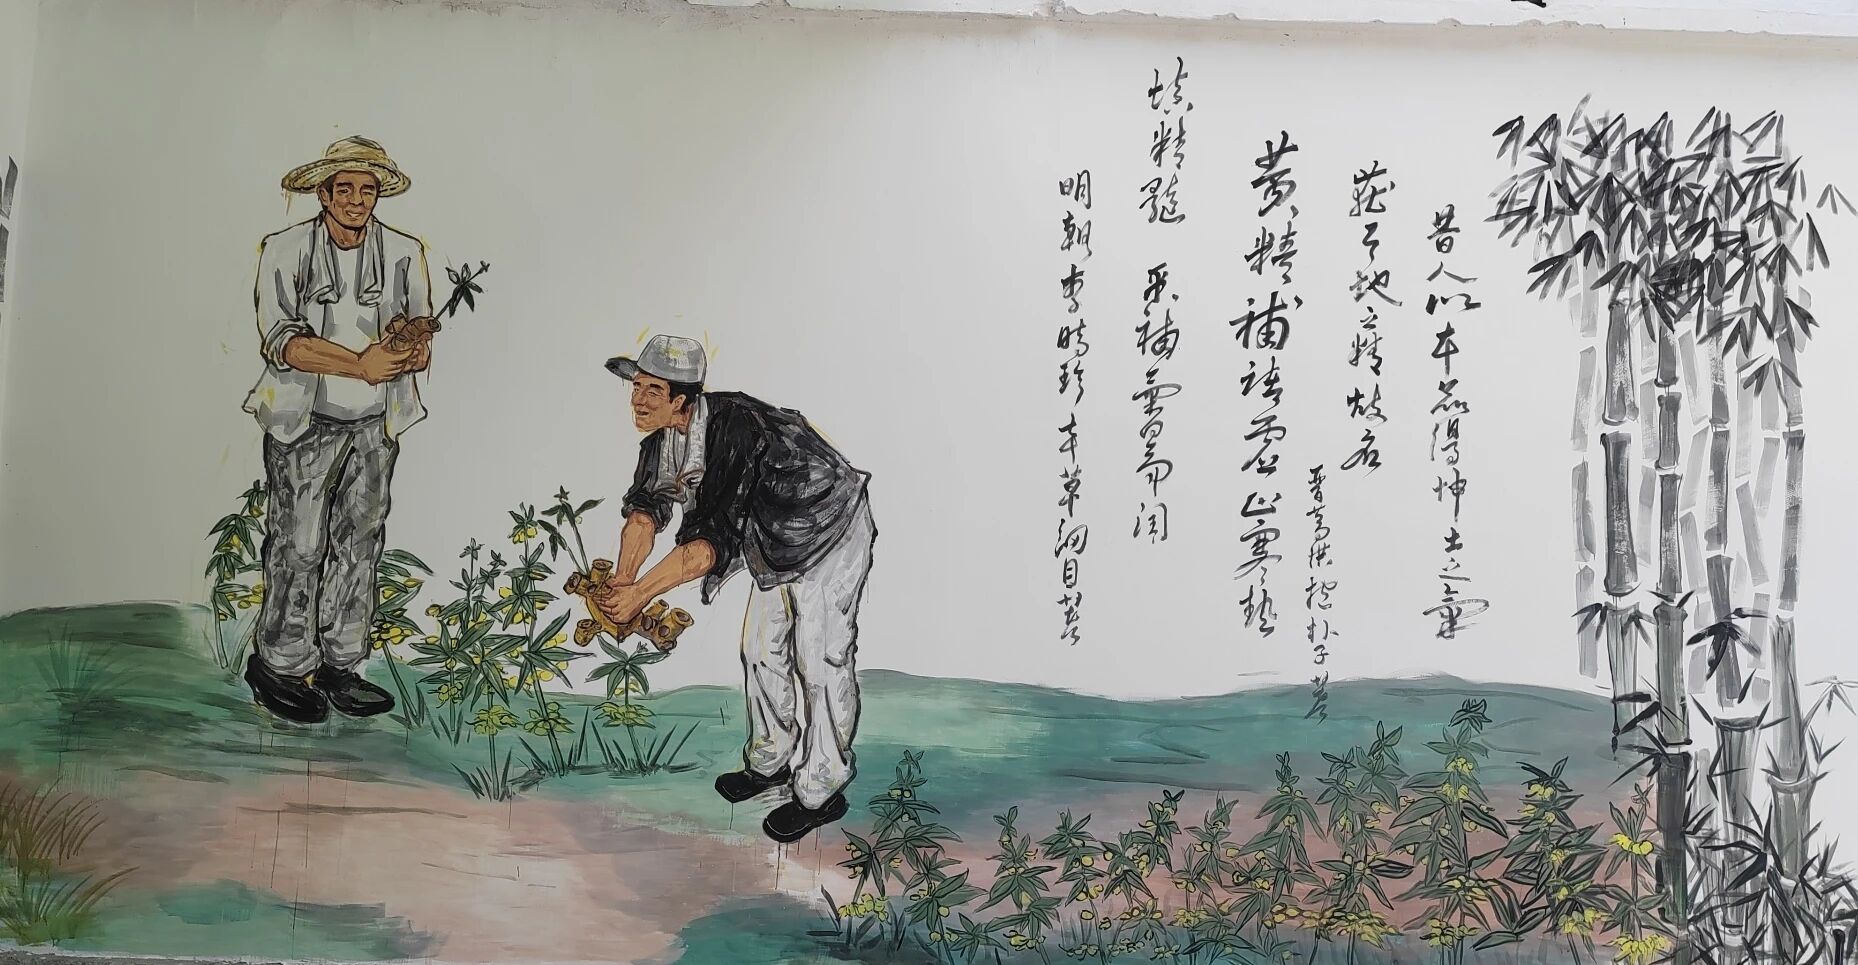 昔人以本品得坤土之氣
获天地之精故名
晋葛洪抱朴子著
黄精補諸虚止寒热
填精髓 補氣 而润
明朝李時珍本草綱目著